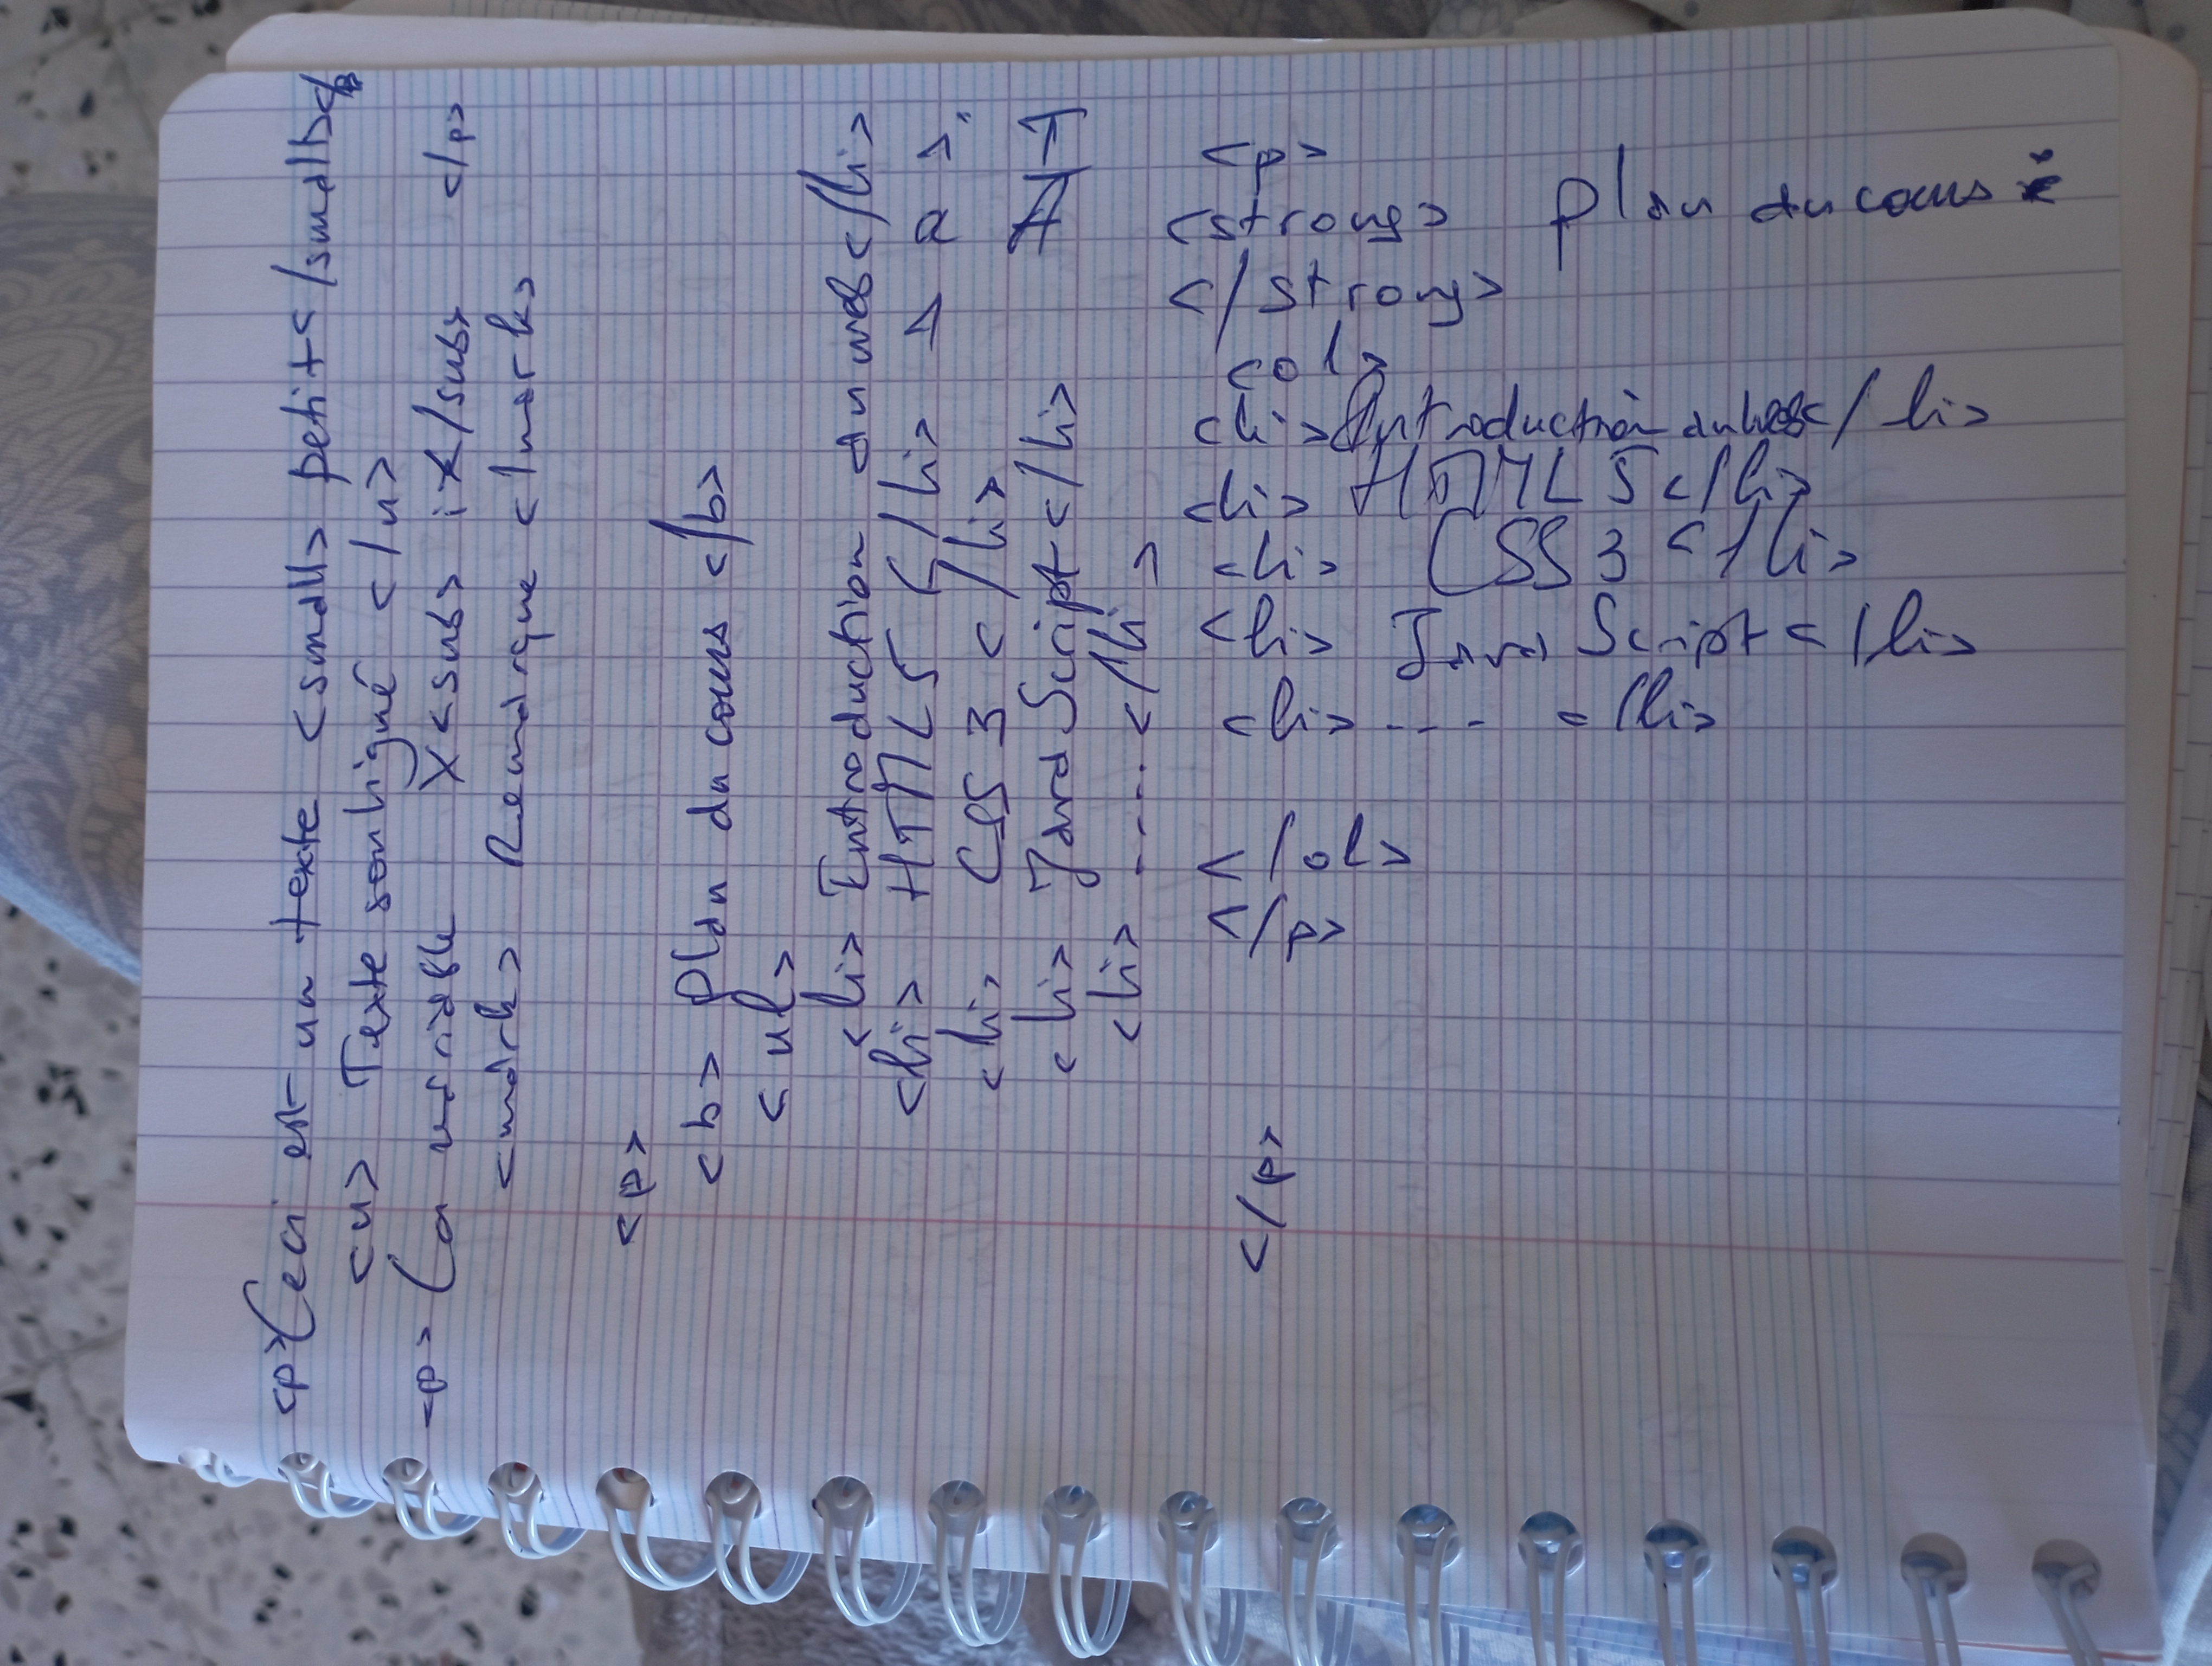 <p>Ceci est un texte <small> petit </small></p>
<u> Texte souligné </u>
<p> La variable X<sub> i </sub> </p>
<mark> Remarque </mark>
<p>
<b> Plan du cours </b>
<ul>
<li> Introduction au web </li>
<li> HTML5 </li>
<li> CSS 3 </li>
<li> JavaScript </li>
<li> .... </li>
</p>
<p>
<strong> Plan du cours
</strong>
<ol>
<li> Introduction au web </li>
<li> HTML5 </li>
<li> CSS 3 </li>
<li> JavaScript </li>
<li> .... </li>
</ol>
</p>